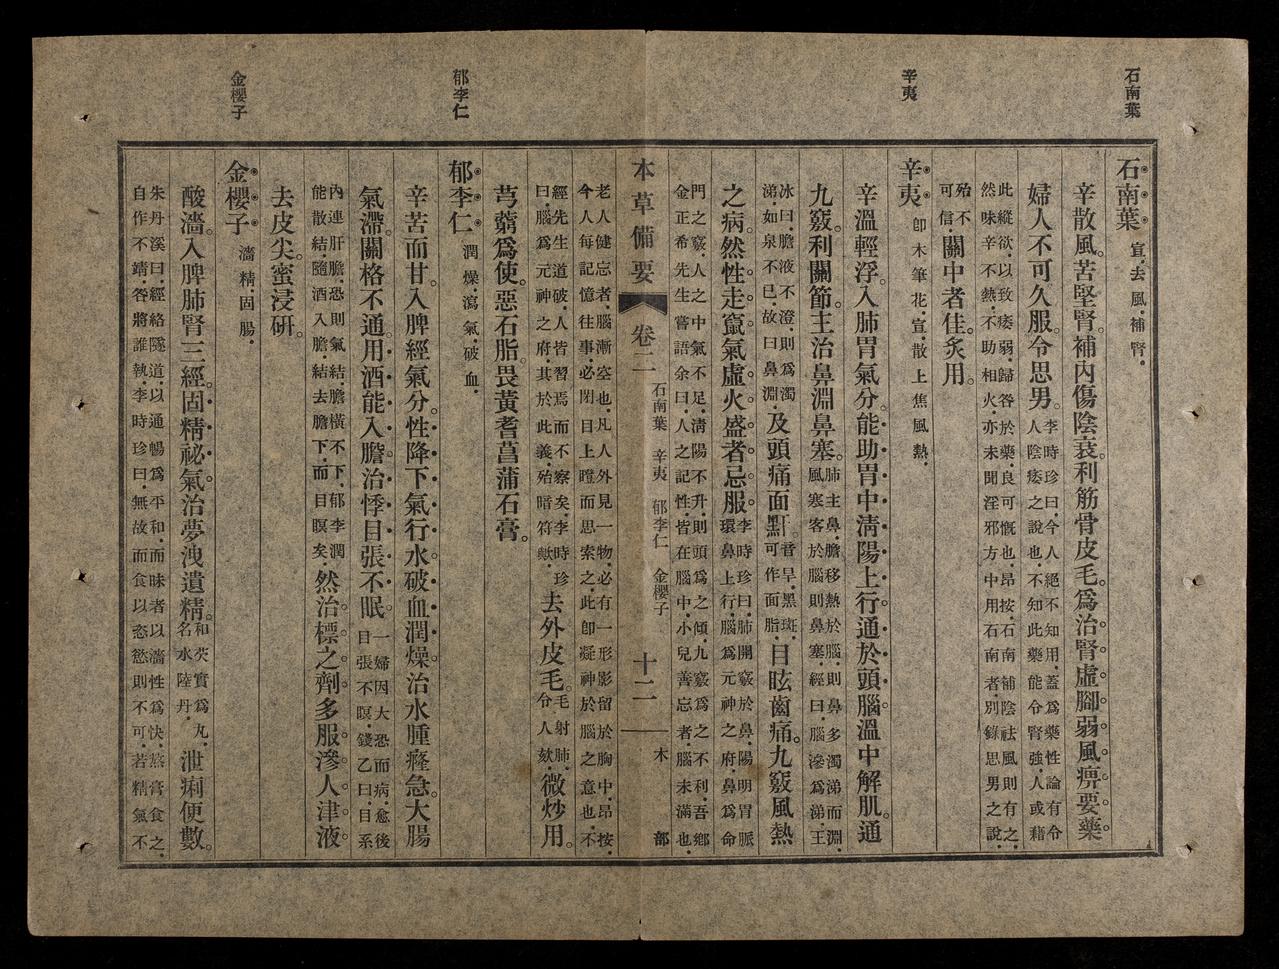 石南葉
辛夷
郁李仁
金櫻子
石南葉 宣去風補腎.
辛散風。苦堅腎。補內傷陰衰。利筋骨皮毛。爲治腎虛腳弱風痹要藥。
婦人不可久服。令思男。李時珍曰.今人絕不知用.蓋爲藥性論有令人陰痿之說也.不知此藥能令腎強.人或藉
此縱欲.以致痿弱.歸咎於藥.良可慨也.昂按.石南補陰祛風則有之.然味辛不熱.不助相火.亦未聞淫邪方中用石南者.別錄思男之說.
殆不可信.關中者佳。炙用。
辛夷 卽木筆花.宣.散上焦風熱.
辛溫輕浮。入肺胃氣分。能助胃中淸陽上行。通於頭腦。溫中解肌。通
九竅。利關節。主治鼻淵鼻塞。肺主鼻.膽移熱於腦.則鼻多濁涕而淵.風寒客於腦則鼻塞.經曰.腦滲爲涕.王
冰曰.膽液不澄.則爲濁涕.如泉不已.故曰鼻淵.及頭痛面䵟。音旱.黑斑.可作面脂.目眩齒痛。九竅風熱
之病。然性走竄。氣虛火盛者忌服。李時珍曰.肺開竅於鼻.陽明胃脈環鼻上行.腦爲元神之府.鼻爲命
門之竅.人之中氣不足.淸陽不升.則頭爲之傾.九竅爲之不利.吾鄕金正希先生嘗語余曰.人之記性.皆在腦中.小兒善忘者.腦未滿也.
本草備要 卷二 石南葉 辛夷 郁李仁 金櫻子 十二 木部
老人健忘者.腦漸空也.凡人外見一物.必有一形影留於胸中.昂按.今人每記憶往事.必閉目上瞪而思索之.此卽凝神於腦之意也.不
經先生道破.人皆習焉而不察矣.李時珍曰.腦爲元神之府.其於此義.殆暗符歟.去外皮毛。毛射肺.令人欬.微炒用。
芎藭爲使。惡石脂。畏黃耆菖蒲石膏。
郁李仁 潤燥.瀉氣.破血.
辛苦而甘。入脾經氣分。性降下氣行水。破血潤燥。治水腫癃急。大腸
氣滯。關格不通。用酒能入膽。治悸目張不眠。一婦因大恐而病.愈後目張不瞑.錢乙曰.目系
內連肝膽.恐則氣結.膽橫不下.郁李潤能散結.隨酒入膽.結去膽下.而目瞑矣.然治標之劑。多服滲人津液。
去皮尖。蜜浸硏。
金櫻子 濇精.固腸.
酸濇。入脾肺腎三經。固精祕氣。治夢洩遺精。和芡實爲丸.名水陸丹.泄痢便數。
朱丹溪曰.經絡隧道.以通暢爲平和.而昧者以濇性爲快.熬膏食之.自作不靖.咎將誰執.李時珍曰.無故而食以恣慾則不可.若精氣不